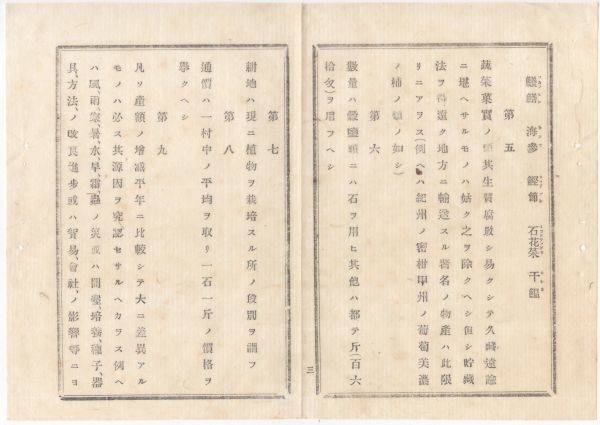 海參 鰹節 石花菜 干鰮
第五
蔬菜菓實ノ類其生質腐敗シ易クシテ久藏遠輸
ニ堪ヘサルモノハ姑ク之ヲ除クヘシ但シ貯藏
法ヲ得遠ク地方ニ輸送スル著名ノ物産ハ此限
リニアラス(例ヘハ紀州ノ密柑甲州ノ葡萄美濃
ノ柿ノ類ノ如シ)
第六
數量ハ穀鹽類ニハ石ヲ用ヒ其他ハ都テ斤(百六
拾匁)ヲ用フヘシ
三
第七
耕地ハ現ニ植物ヲ栽培スル所ノ段別ヲ謂フ
第八
通價ハ一村中ノ平均ヲ取リ一石一斤ノ價格ヲ
擧クヘシ
第九
凡ソ產額ノ增減平年ニ比較シテ大ニ差異アル
モノハ必ス其源因ヲ究認セサルヘカラス例ヘ
ハ風、雨、寒、暑、水、旱、霜、蟲ノ災或ハ開墾、培養、種子、器
具、方法、ノ改良進步或ハ貿易、會社、ノ影響等ニヨ